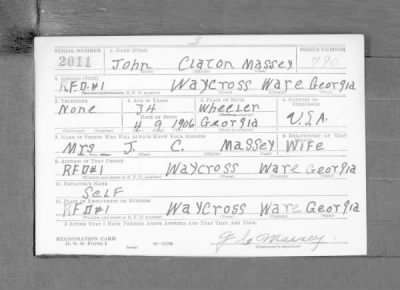 SERIAL NUMBER 1. NAME (Print) ORDER NUMBER
2011 John Claton Massey 790
(First) (Middle) (Last)
2. ADDRESS (Print)
RFD#1 Waycross Ware Georgia
3. TELEPHONE 4. AGE IN YEARS 5. PLACE OF BIRTH 6. COUNTRY OF CITIZENSHIP
None 34 Wheeler
DATE OF BIRTH
4 9 1906 Georgia U.S.A.
7. NAME OF PERSON WHO WILL ALWAYS KNOW YOUR ADDRESS 8. RELATIONSHIP OF THAT PERSON
Mrs J. C. Massey Wife
9. ADDRESS OF THAT PERSON
RFD#1 Waycross Ware Georgia
10. EMPLOYER'S NAME
Self
11. PLACE OF EMPLOYMENT OR BUSINESS
RFD#1 Waycross Ware Georgia
I AFFIRM THAT I HAVE VERIFIED ABOVE ANSWERS AND THAT THEY ARE TRUE.
REGISTRATION CARD
D. S. S. Form 1
J C Massey